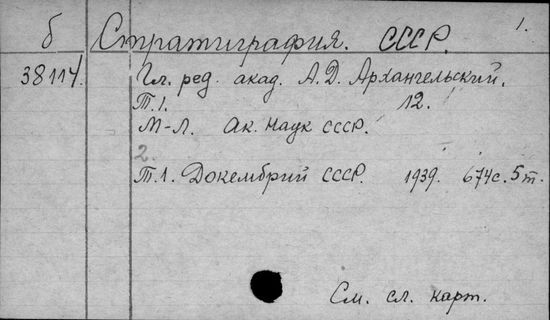 б Стратиграфия. СССР. 1.
38114. Гл. ред. акад. А. Д. Архангельский.
Т. 1. 12.
М-Л. Ак. Наук СССР.
2.
Т. 1. Докембрий СССР. 1939. 674с. 5т.
См. сл. карт.